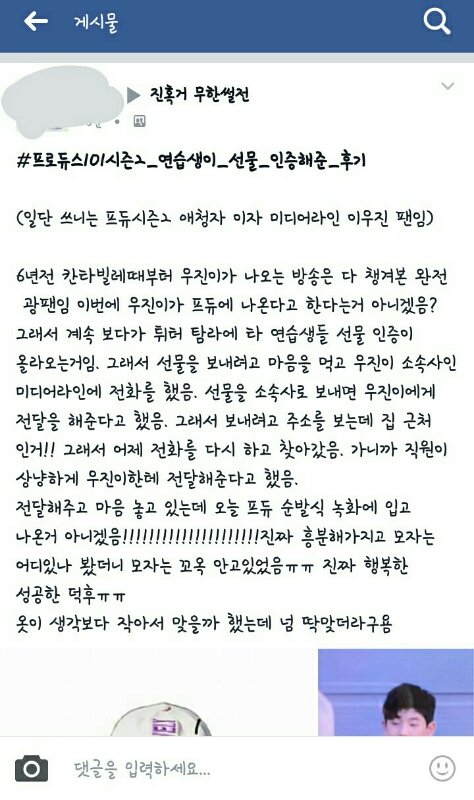 게시물
진혹거 무한썰전
#프로듀스101시즌2_연습생이_선물_인증해준_후기
(일단 쓰니는 프듀시즌2 애청자 이자 미디어라인 이우진 팬임)
6년전 칸타빌레때부허 우진이가 나오는 방송은 다 챙겨본 완전
광팬임 이번에 우진이가 프듀에 나온다고 한다는거 아니겠음?
그래서 계속 보다가 튀허 탐라에 타 연습생들 선물 인증이
올라오는거임. 그래서 선물을 보내려고 마음을 먹고 우진이 소속사인
미디어라인에 전화를 했음. 선물을 소속사로 보내면 우진이에게
전달을 해준다고 했음. 그래서 보내려고 주소를 보는데 집 근처
인거!! 그래서 어제 전화를 다시 하고 찾아갔음. 가니까 직원이
상냥하게 우진이한테 전달해준다고 했음.
전달해주고 마음 놓고 있는데 오늘 프듀 순발식 녹화에 입고
나온거 아니겠음!!!!!!!!!!!!!!!!!!!!!진짜 흥분해가지고 모자는
어디있나 봤더니 모자는 꼬옥 안고있었음ㅠㅠ 진짜 행복한
성공한 덕후ㅠㅠ
옷이 생각보다 작아서 맞을까 했는데 넘 딱맞더라구욤
댓글을 입력하세요...